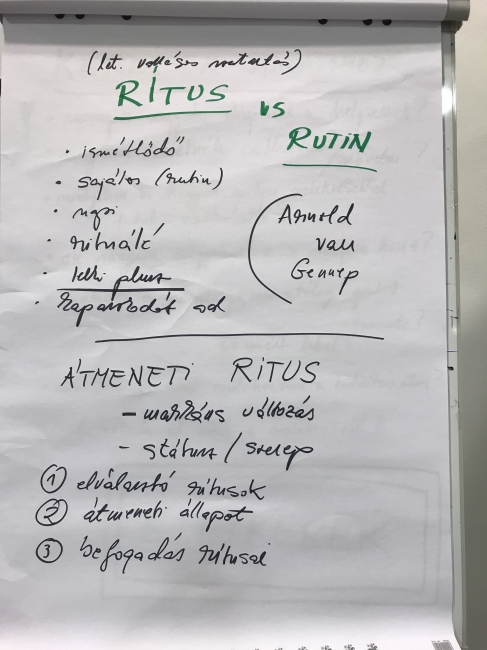 (lat. vallásos szertartás)
RÍTUS vs
RUTIN
• ismétlődő
• sajátos (rutin)
•
• rituálé
• lelki plusz
• kapaszkodót ad
Arnold
van
Gennep
ÁTMENETI RÍTUS
- markáns változás
- státusz / szerep
① elválasztó rítusok
② átmeneti állapot
③ befogadás rítusai